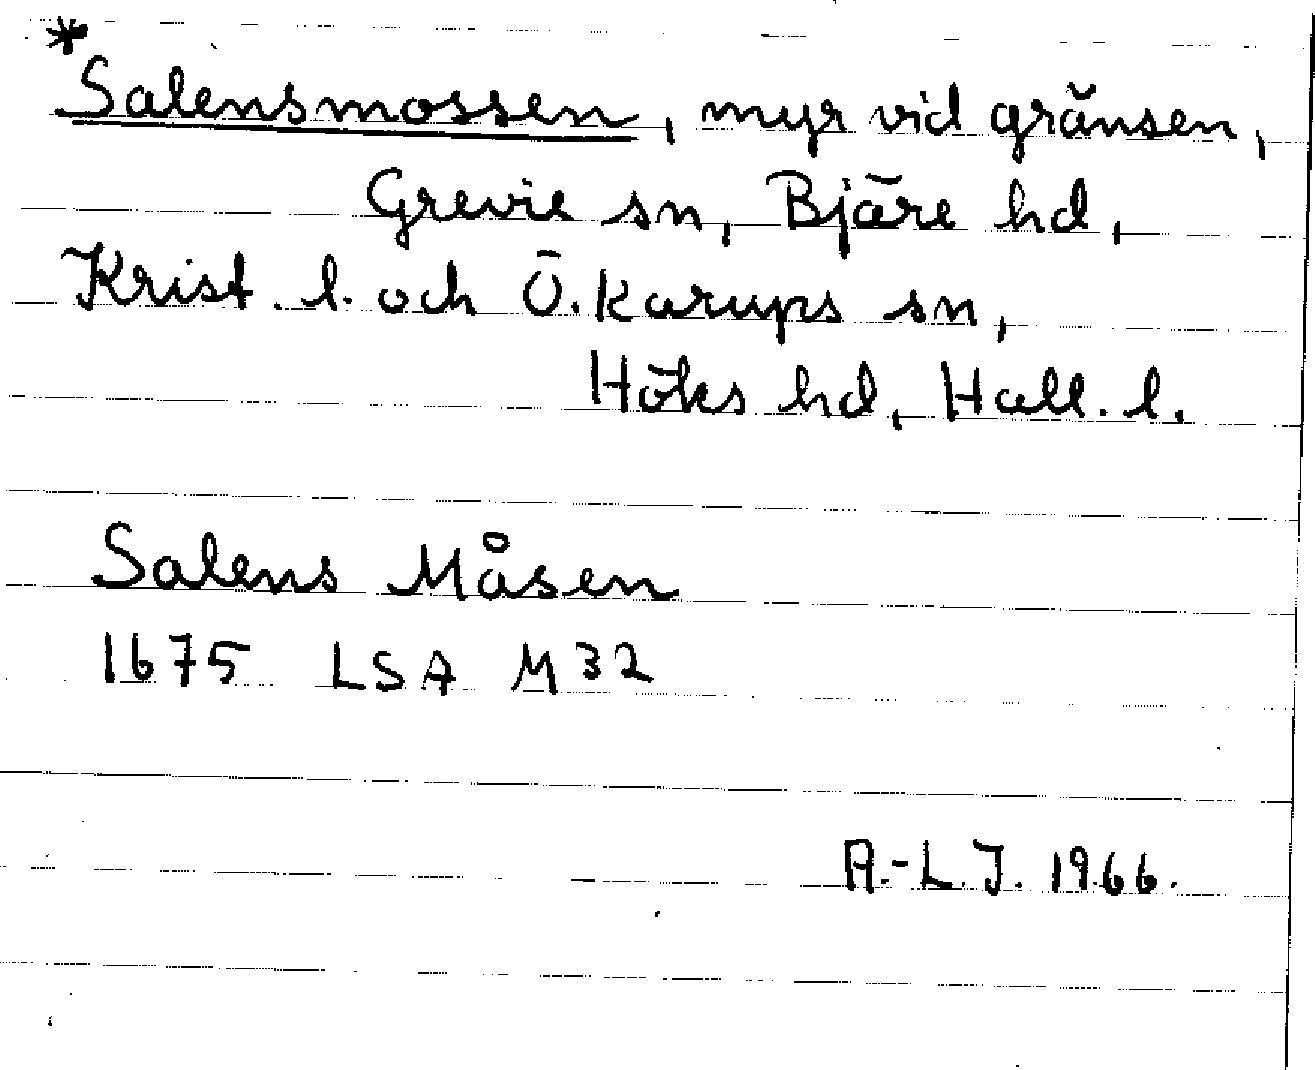 *Salensmossen, myr vid gränsen,
Grevie sn, Bjäre hd,
Krist. l. och Ö. Karups sn,
Höks hd, Hall. l.
Salens Måsen
1675 LSA M32
A.-L.J. 1966.